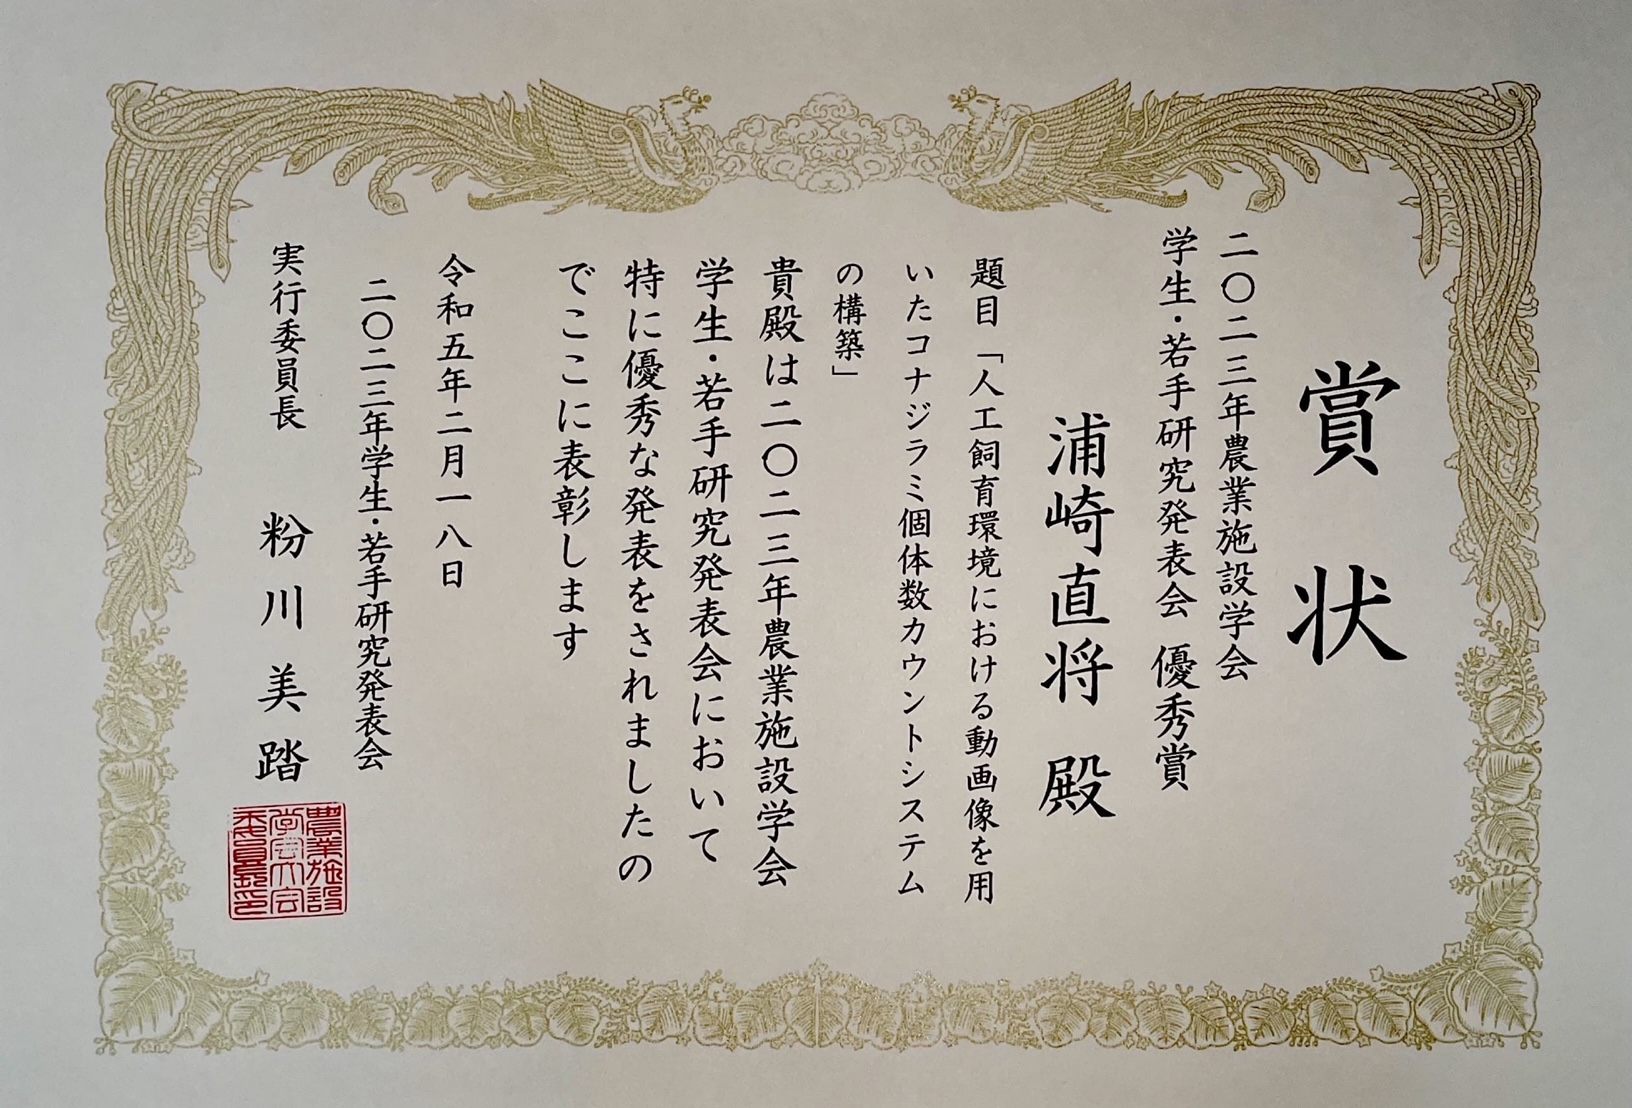 賞状
二〇二三年農業施設学会
学生・若手研究発表会 優秀賞
浦崎直将 殿
題目「人工飼育環境における動画像を用
いたコナジラミ個体数カウントシステム
の構築」
貴殿は二〇二三年農業施設学会
学生・若手研究発表会において
特に優秀な発表をされましたの
でここに表彰します
令和五年二月一八日
二〇二三年学生・若手研究発表会
実行委員長 粉川美踏
農業施設